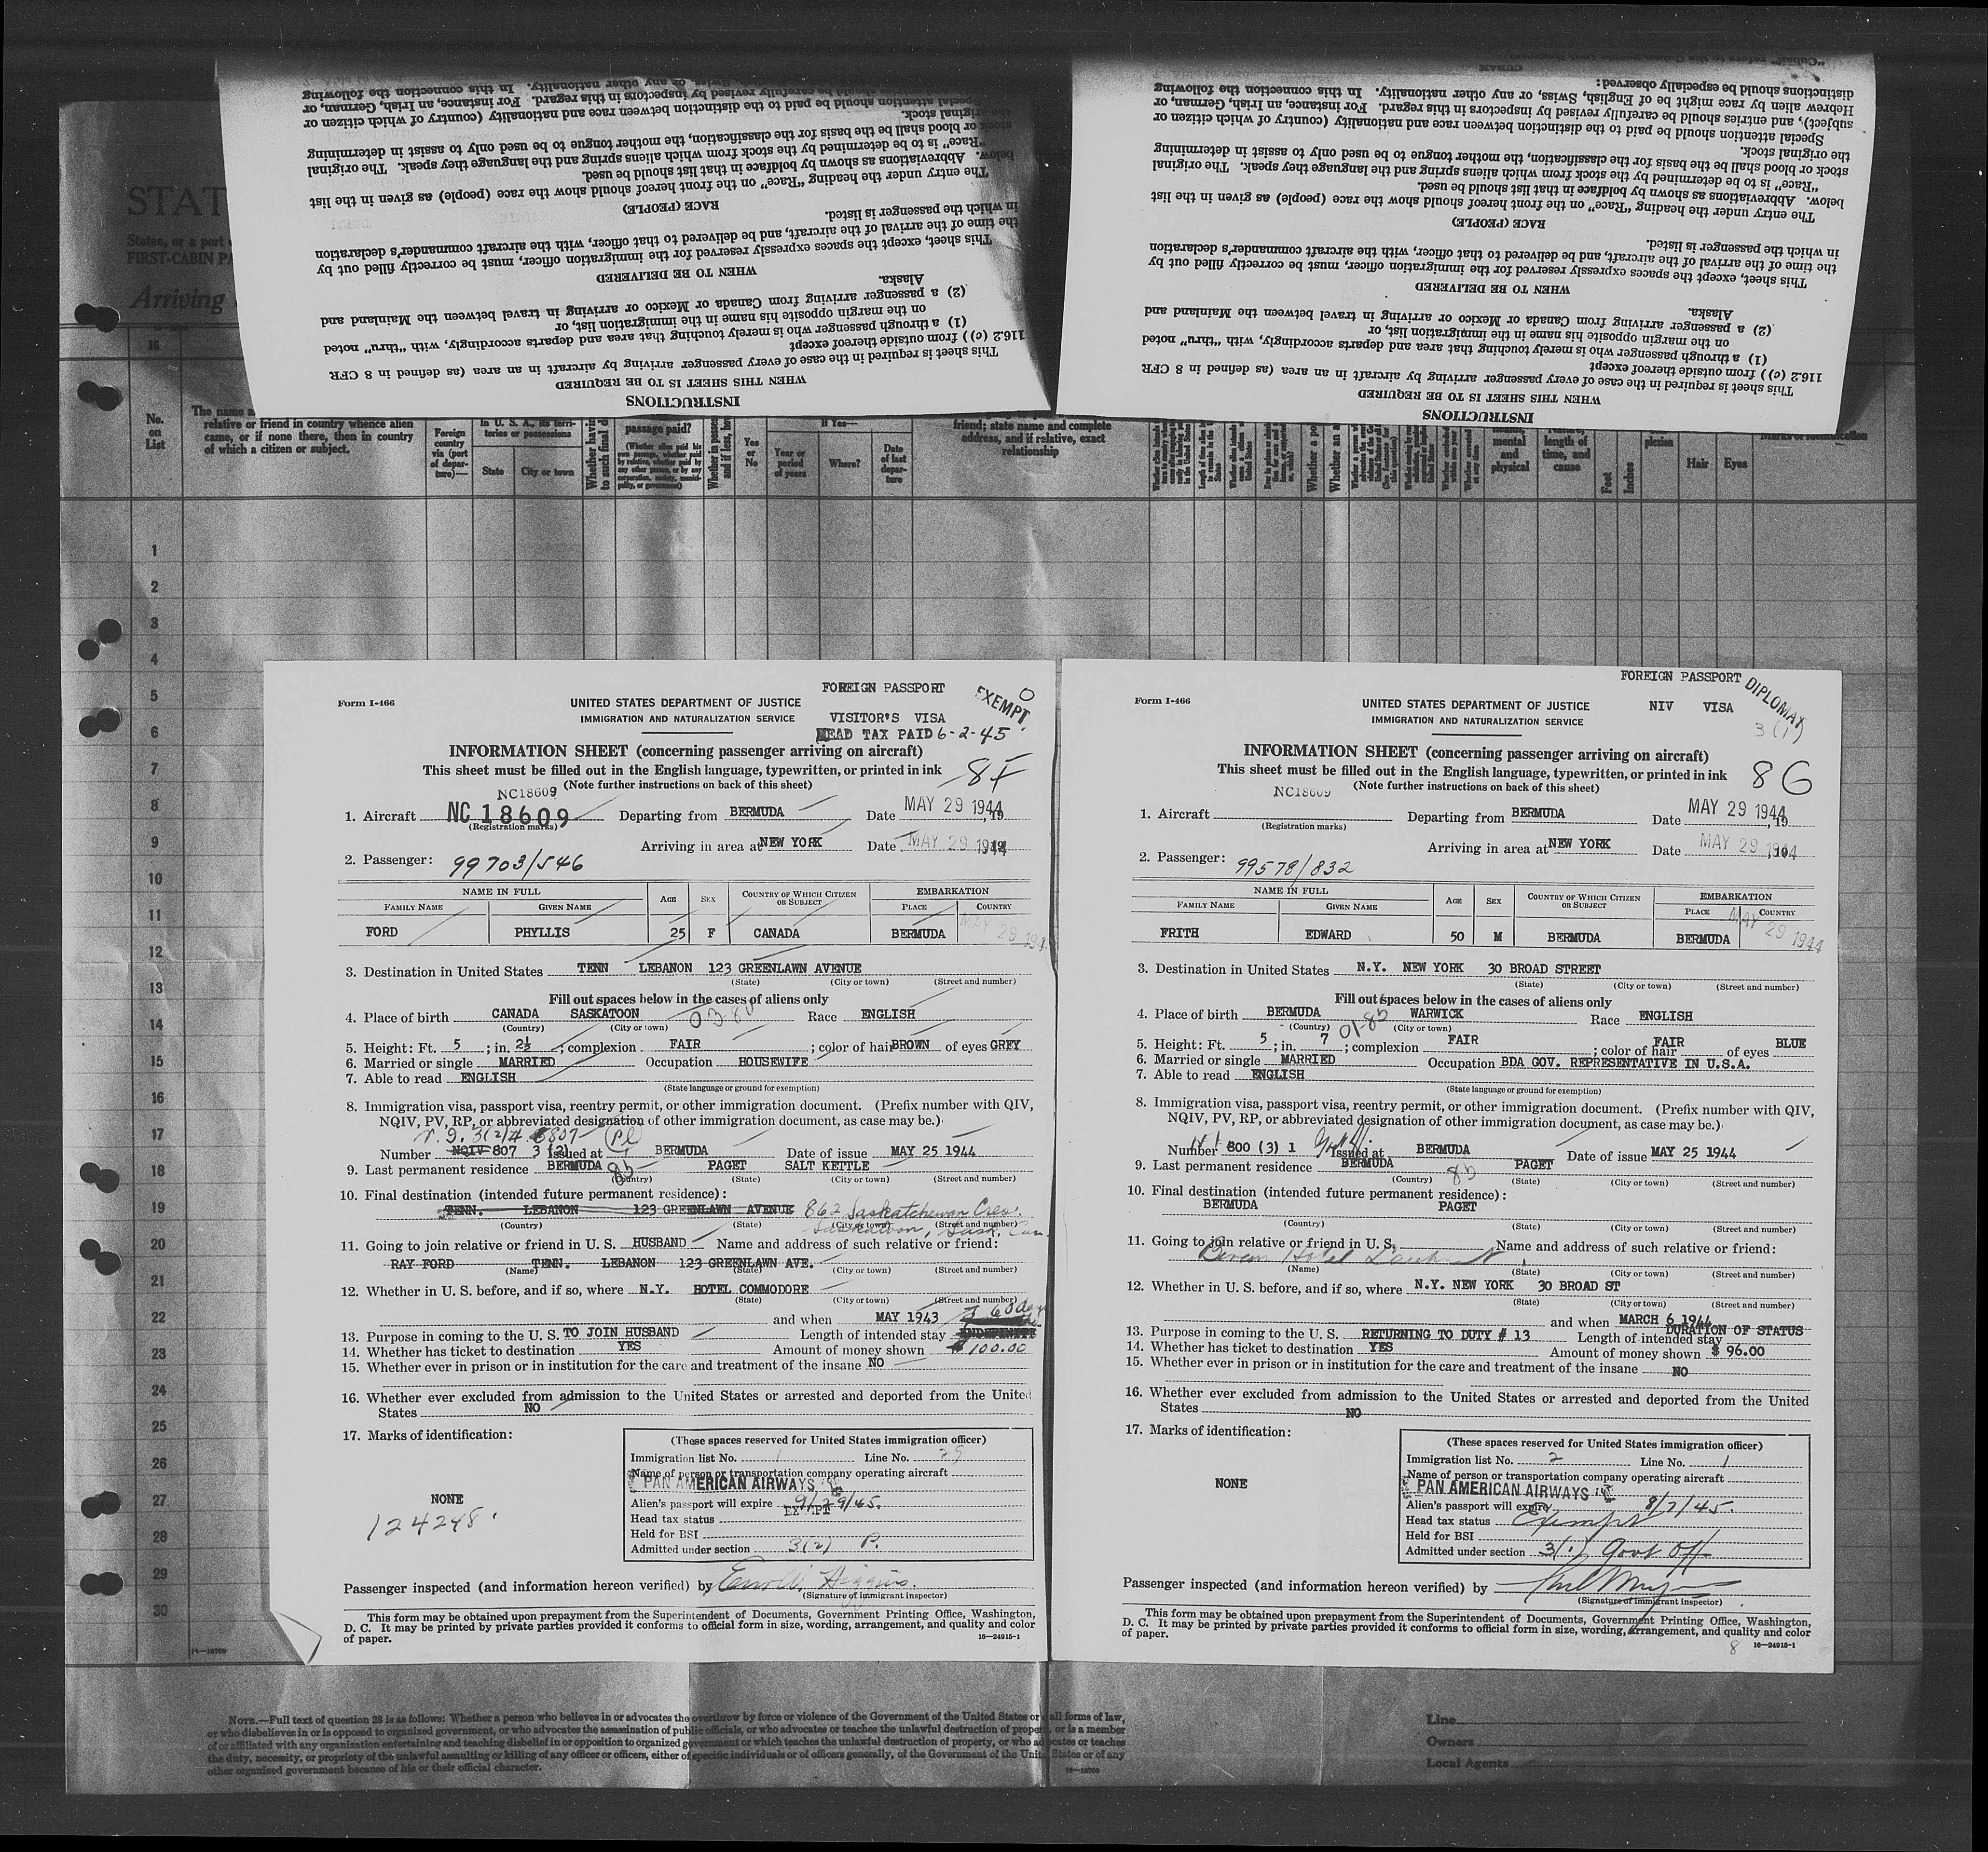 INSTRUCTIONS
WHEN THIS SHEET IS TO BE REQUIRED
This sheet is required in the case of every passenger arriving by aircraft in an area (as defined in 8 CFR
116.2 (c)) from outside thereof except
(1) a through passenger who is merely touching that area and departs accordingly, with "thru" noted
on the margin opposite his name in the immigration list, or
(2) a passenger arriving from Canada or Mexico or arriving in travel between the Mainland and
Alaska.
WHEN TO BE DELIVERED
This sheet, except the spaces expressly reserved for the immigration officer, must be correctly filled out by
the time of the arrival of the aircraft, and be delivered to that officer, with the aircraft commander's declaration
in which the passenger is listed.
RACE (PEOPLE)
The entry under the heading "Race" on the front hereof should show the race (people) as given in the list
below. Abbreviations as shown by boldface in that list should be used.
"Race" is to be determined by the stock from which aliens spring and the language they speak. The original
stock or blood shall be the basis for the classification, the mother tongue to be used only to assist in determining
the original stock.
Special attention should be paid to the distinction between race and nationality (country of which citizen or
subject), and entries should be carefully revised by inspectors in this regard. For instance, an Irish, German, or
Hebrew alien by race might be of English, Swiss, or any other nationality. In this connection the following
INSTRUCTIONS
WHEN THIS SHEET IS TO BE REQUIRED
This sheet is required in the case of every passenger arriving by aircraft in an area (as defined in 8 CFR
116.2 (c)) from outside thereof except
(1) a through passenger who is merely touching that area and departs accordingly, with "thru" noted
on the margin opposite his name in the immigration list, or
(2) a passenger arriving from Canada or Mexico or arriving in travel between the Mainland and
Alaska.
WHEN TO BE DELIVERED
This sheet, except the spaces expressly reserved for the immigration officer, must be correctly filled out by
the time of the arrival of the aircraft, and be delivered to that officer, with the aircraft commander's declaration
in which the passenger is listed.
RACE (PEOPLE)
The entry under the heading "Race" on the front hereof should show the race (people) as given in the list
below. Abbreviations as shown by boldface in that list should be used.
"Race" is to be determined by the stock from which aliens spring and the language they speak. The original
stock or blood shall be the basis for the classification, the mother tongue to be used only to assist in determining
the original stock.
Special attention should be paid to the distinction between race and nationality (country of which citizen or
subject), and entries should be carefully revised by inspectors in this regard. For instance, an Irish, German, or
Hebrew alien by race might be of English, Swiss, or any other nationality. In this connection the following
distinctions should be especially observed:
CUBAN
STAT
States, or a port
FIRST-CABIN PA
Arriving
16
No. on List
The name a
relative or friend in country whence alien
came, or if none there, then in country
of which a citizen or subject.
Foreign country via (port of departure)—
In U. S. A., its territories or possessions
State
City or town
passage paid?
(Whether alien paid his own passage, whether paid by relative, whether paid by any other person, or by any corporation, society, municipality, or government)
Yes or No
If Yes—
Year or period of years
Where?
Date of last departure
friend; state name and complete
address, and if relative, exact
relationship
mental and physical
length of time, and cause
Feet
Inches
plexion
Hair
Eyes
1
2
3
4
5
6
7
8
9
10
11
12
13
14
15
16
17
18
19
20
21
22
23
24
25
26
27
28
29
30
FOREIGN PASSPORT
EXEMPT
0
Form I-466
UNITED STATES DEPARTMENT OF JUSTICE
IMMIGRATION AND NATURALIZATION SERVICE
VISITOR'S VISA
HEAD TAX PAID 6-2-45
INFORMATION SHEET (concerning passenger arriving on aircraft)
This sheet must be filled out in the English language, typewritten, or printed in ink
8F
(Note further instructions on back of this sheet)
NC18609
1. Aircraft NC 18609 Departing from BERMUDA Date MAY 29 1944, 19
(Registration marks)
Arriving in area at NEW YORK Date MAY 29 1944
2. Passenger: 99703/546
NAME IN FULL
AGE
SEX
COUNTRY OF WHICH CITIZEN OR SUBJECT
EMBARKATION
FAMILY NAME
GIVEN NAME
PLACE
COUNTRY
MAY 29 194
FORD PHYLLIS 25 F CANADA BERMUDA
3. Destination in United States TENN LEBANON 123 GREENLAWN AVENUE
(State) (City or town) (Street and number)
Fill out spaces below in the cases of aliens only
4. Place of birth CANADA SASKATOON Race ENGLISH
(Country) (City or town)
5. Height: Ft. 5; in. 2½; complexion FAIR; color of hair BROWN of eyes GREY
6. Married or single MARRIED Occupation HOUSEWIFE
7. Able to read ENGLISH
(State language or ground for exemption)
8. Immigration visa, passport visa, reentry permit, or other immigration document. (Prefix number with QIV,
NQIV, PV, RP, or abbreviated designation of other immigration document, as case may be.)
Number NQIV 807 3 (2) Issued at BERMUDA Date of issue MAY 25 1944
9. Last permanent residence BERMUDA PAGET SALT KETTLE
(Country) (State) (City or town) (Street and number)
10. Final destination (intended future permanent residence):
TENN. LEBANON 123 GREENLAWN AVENUE 862 Saskatchewan Cres.
(Country) (State) (City or town) (Street and number)
Saskatoon, Sask. Can.
11. Going to join relative or friend in U. S. HUSBAND Name and address of such relative or friend:
RAY FORD TENN. LEBANON 123 GREENLAWN AVE.
(Name) (State) (City or town) (Street and number)
12. Whether in U. S. before, and if so, where N.Y. HOTEL COMMODORE
(State) (City or town) (Street and number)
and when MAY 1943
60 days
13. Purpose in coming to the U. S. TO JOIN HUSBAND Length of intended stay INDEFINITE
14. Whether has ticket to destination YES Amount of money shown $100.00
15. Whether ever in prison or in institution for the care and treatment of the insane NO
16. Whether ever excluded from admission to the United States or arrested and deported from the United
States NO
17. Marks of identification:
NONE
124248.
(These spaces reserved for United States immigration officer)
Immigration list No. 1 Line No. 29
Name of person or transportation company operating aircraft
PAN AMERICAN AIRWAYS
Alien's passport will expire 9/29/45.
Head tax status EXEMPT
Held for BSI
Admitted under section 3(2) P.
Passenger inspected (and information hereon verified) by
(Signature of immigrant inspector)
This form may be obtained upon prepayment from the Superintendent of Documents, Government Printing Office, Washington,
D. C. It may be printed by private parties provided it conforms to official form in size, wording, arrangement, and quality and color
of paper.
16—24915-1
FOREIGN PASSPORT
DIPLOMAT
3(1)
Form I-466
UNITED STATES DEPARTMENT OF JUSTICE
NIV VISA
IMMIGRATION AND NATURALIZATION SERVICE
INFORMATION SHEET (concerning passenger arriving on aircraft)
This sheet must be filled out in the English language, typewritten, or printed in ink
8G
(Note further instructions on back of this sheet)
NC18609
1. Aircraft Departing from BERMUDA Date MAY 29 1944, 19
(Registration marks)
Arriving in area at NEW YORK Date MAY 29 1944
2. Passenger: 99578/832
NAME IN FULL
AGE
SEX
COUNTRY OF WHICH CITIZEN OR SUBJECT
EMBARKATION
FAMILY NAME
GIVEN NAME
PLACE
COUNTRY
MAY 29 1944
FRITH EDWARD 50 M BERMUDA BERMUDA
3. Destination in United States N.Y. NEW YORK 30 BROAD STREET
(State) (City or town) (Street and number)
Fill out spaces below in the cases of aliens only
4. Place of birth BERMUDA WARWICK Race ENGLISH
(Country) (City or town)
5. Height: Ft. 5; in. 7; complexion FAIR; color of hair FAIR of eyes BLUE
6. Married or single MARRIED Occupation BDA GOV. REPRESENTATIVE IN U.S.A.
7. Able to read ENGLISH
(State language or ground for exemption)
8. Immigration visa, passport visa, reentry permit, or other immigration document. (Prefix number with QIV,
NQIV, PV, RP, or abbreviated designation of other immigration document, as case may be.)
Number 800 (3) 1 Issued at BERMUDA Date of issue MAY 25 1944
9. Last permanent residence BERMUDA PAGET
(Country) (State) (City or town) (Street and number)
10. Final destination (intended future permanent residence):
BERMUDA PAGET
(Country) (State) (City or town) (Street and number)
11. Going to join relative or friend in U. S. Name and address of such relative or friend:
(Name) (State) (City or town) (Street and number)
12. Whether in U. S. before, and if so, where N.Y. NEW YORK 30 BROAD ST
(State) (City or town) (Street and number)
and when MARCH 6 1944
13. Purpose in coming to the U. S. RETURNING TO DUTY # 13 Length of intended stay DURATION OF STATUS
14. Whether has ticket to destination YES Amount of money shown $ 96.00
15. Whether ever in prison or in institution for the care and treatment of the insane NO
16. Whether ever excluded from admission to the United States or arrested and deported from the United
States NO
17. Marks of identification:
NONE
(These spaces reserved for United States immigration officer)
Immigration list No. 2 Line No. 1
Name of person or transportation company operating aircraft
PAN AMERICAN AIRWAYS
Alien's passport will expire 8/7/45.
Head tax status Exempt
Held for BSI
Admitted under section 3(1) Govt Off
Passenger inspected (and information hereon verified) by
(Signature of immigrant inspector)
This form may be obtained upon prepayment from the Superintendent of Documents, Government Printing Office, Washington,
D. C. It may be printed by private parties provided it conforms to official form in size, wording, arrangement, and quality and color
of paper.
8 16—24915-1
NOTE.—Full text of question 28 is as follows: Whether a person who believes in or advocates the overthrow by force or violence of the Government of the United States or all forms of law,
or who disbelieves in or is opposed to organized government, or who advocates the assassination of public officials, or who advocates or teaches the unlawful destruction of property, or is a member
of or affiliated with any organization entertaining and teaching disbelief in or opposition to organized government or which teaches the unlawful destruction of property, or who advocates or teaches
the duty, necessity, or propriety of the unlawful assaulting or killing of any officer or officers, either of specific individuals or of officers generally, of the Government of the United States or of any
other organized government because of his or their official character.
Line
Owners
Local Agents